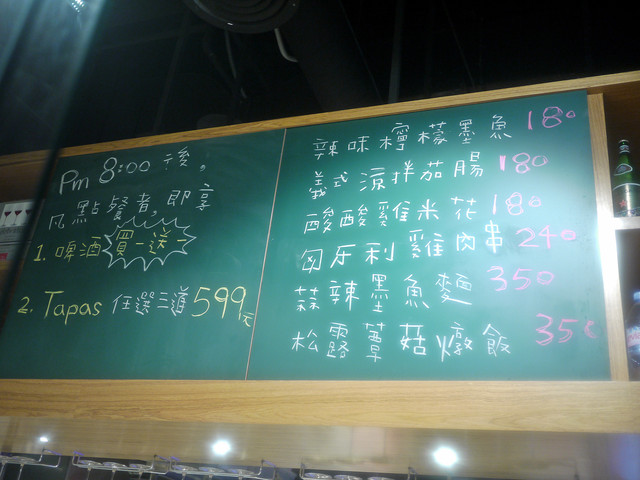 Pm 8:00 後,
凡點餐者,即享
1. 啤酒買一送一
2. Tapas 任選三道599元
辣味檸檬墨魚 180
義式涼拌茄腸 180
酸酸雞米花 180
匈牙利雞肉串 240
蒜辣墨魚麵 350
松露蕈菇燉飯 350